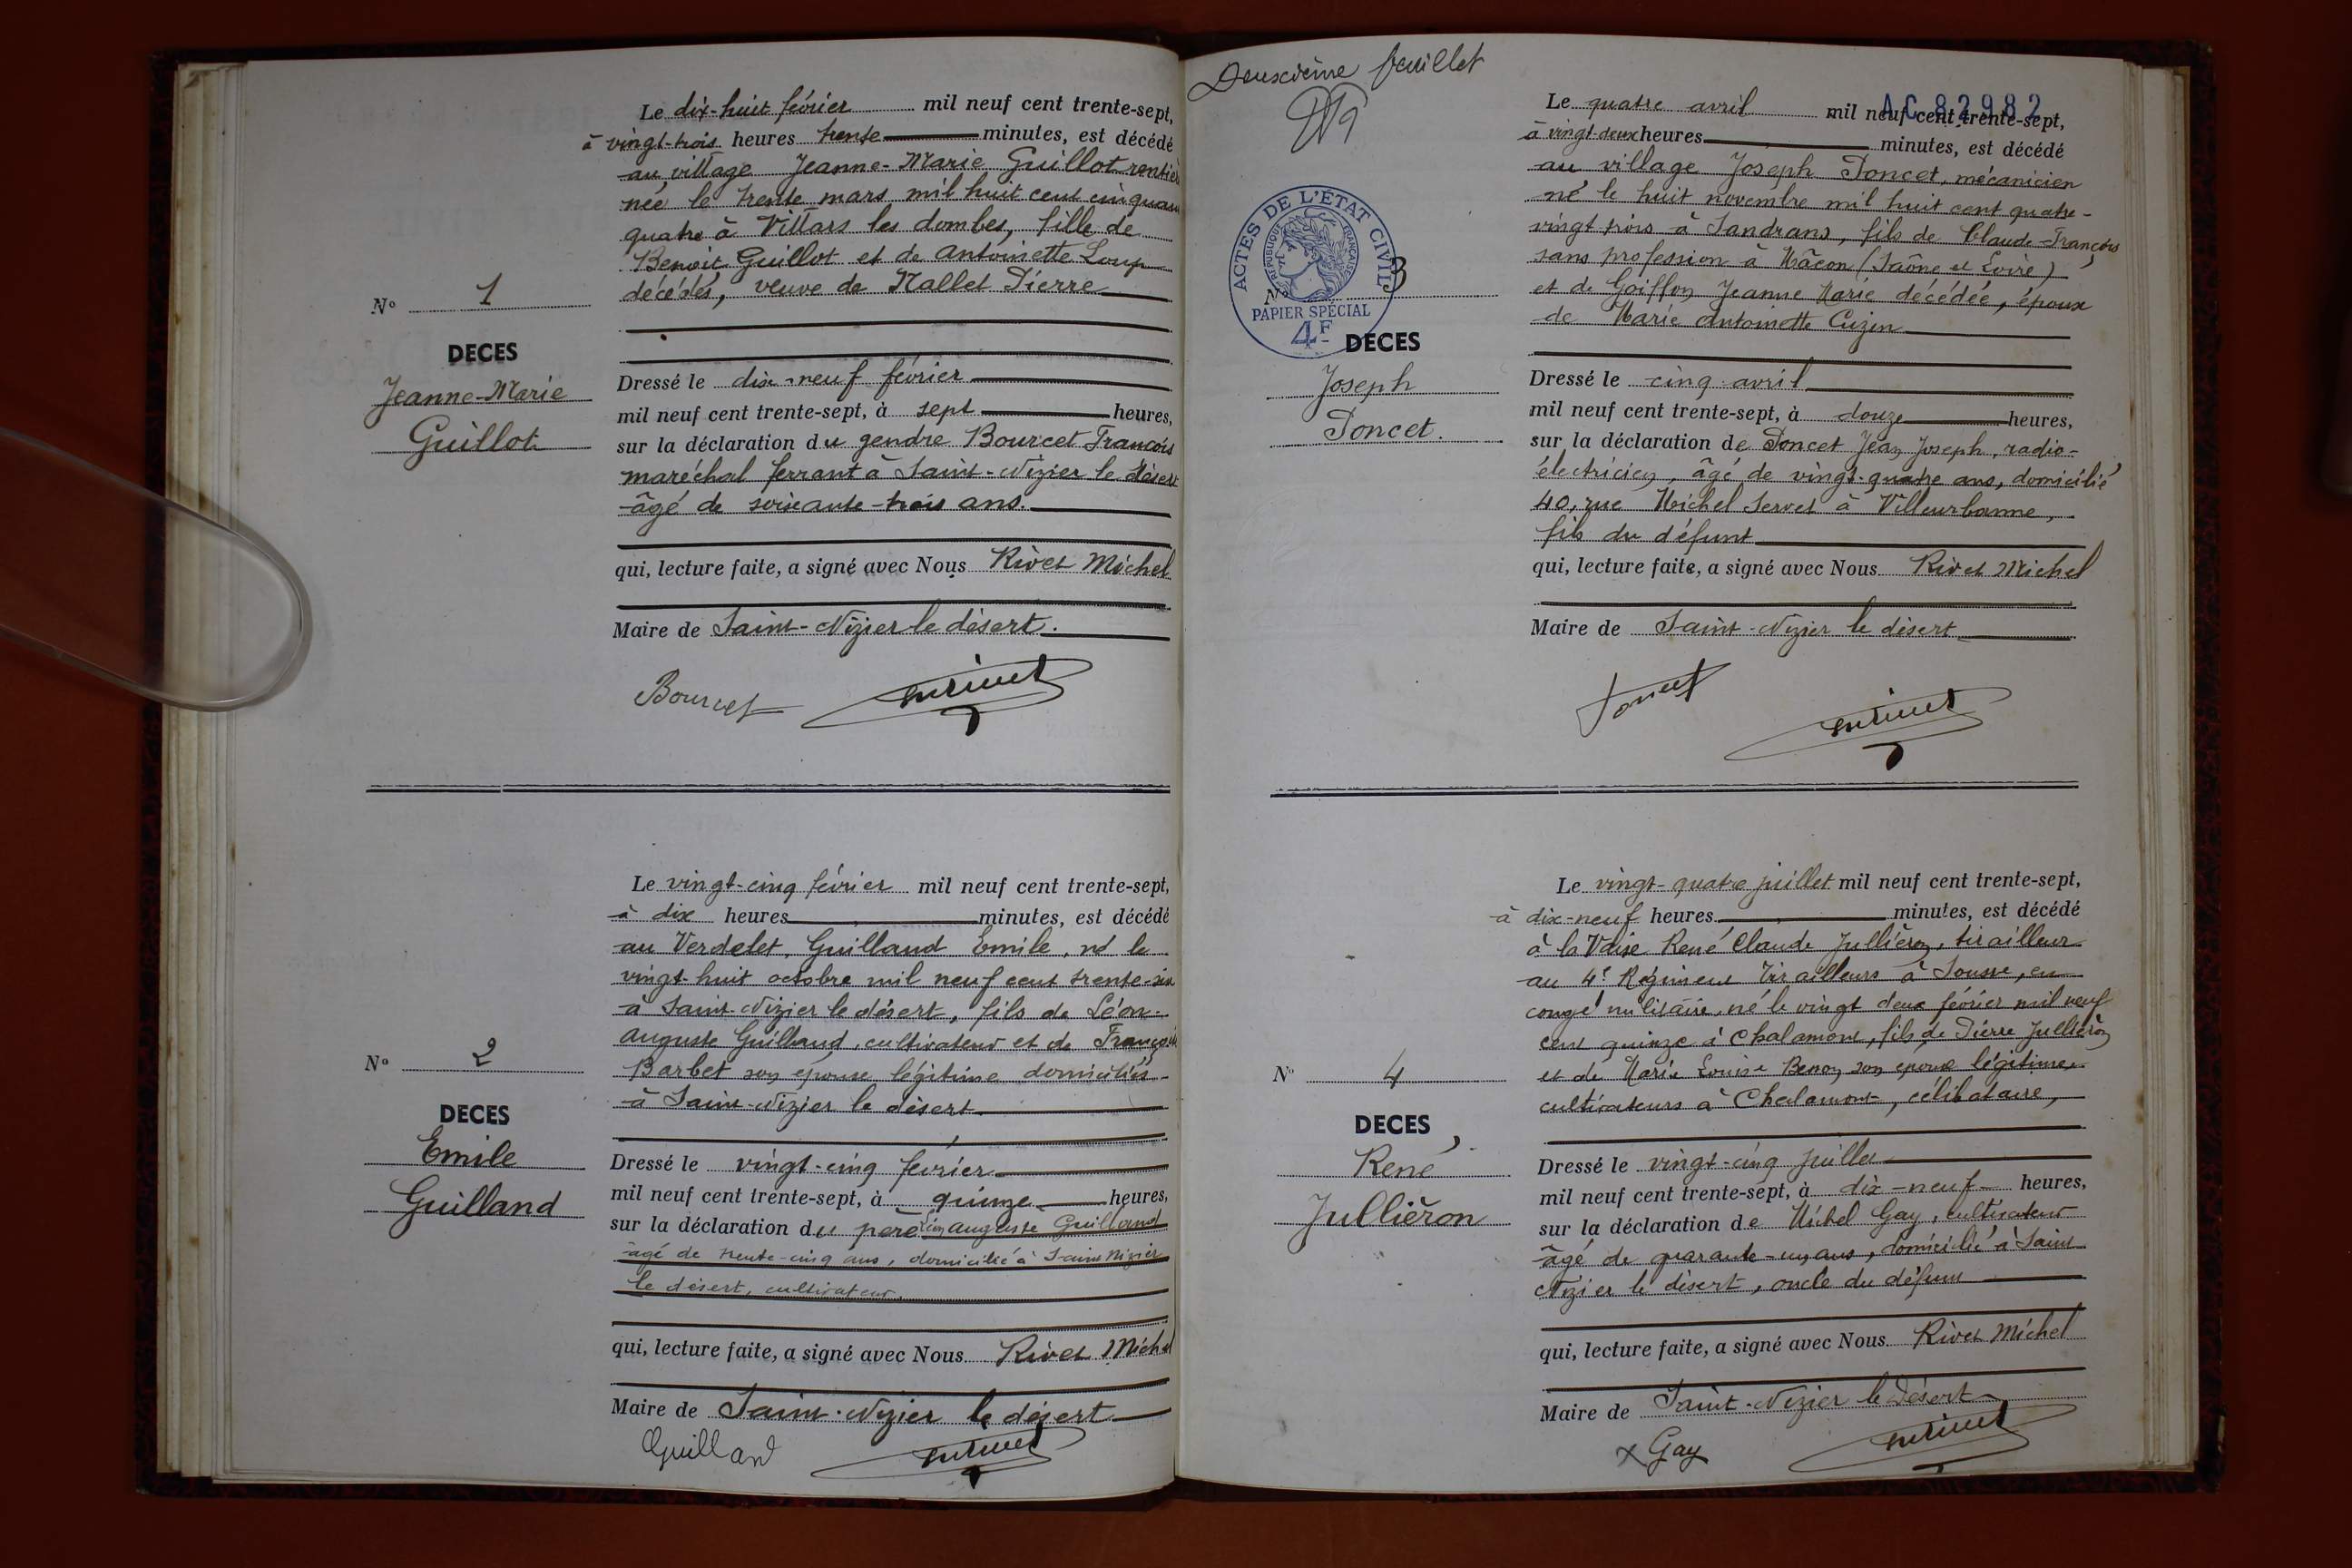 Le dix-huit février mil neuf cent trente-sept,
à vingt-trois heures trente minutes, est décédé
au village Jeanne-Marie Guillot rentière
née le trente mars mil huit cent cinquante
quatre à Villars les dombes, fille de
Benoit Guillot et de Antoinette Loup
décédés, veuve de Nallet Pierre
N° 1
DECES
Jeanne-Marie
Guillot
Dressé le dix-neuf février
mil neuf cent trente-sept, à sept heures,
sur la déclaration du gendre Bourcet François
maréchal ferrant à Saint-Nizier le désert
âgé de soixante-trois ans.
qui, lecture faite, a signé avec Nous Rivet Michel
Maire de Saint-Nizier le désert.
Bourcet
Le vingt-cinq février mil neuf cent trente-sept,
à dix heures minutes, est décédé
au Verdelet, Guilland Emile, né le
vingt-huit octobre mil neuf cent trente-six
à Saint-Nizier le désert, fils de Léon-
Auguste Guilland, cultivateur et de
Barbet son épouse légitime domiciliés
à Saint-Nizier le désert
N° 2
DECES
Emile
Guilland
Dressé le vingt-cinq février
mil neuf cent trente-sept, à quinze heures,
sur la déclaration du père Léon auguste Guilland
âgé de trente-cinq ans, domicilié à Saint Nizier
le désert, cultivateur.
qui, lecture faite, a signé avec Nous Rivet Michel
Maire de Saint-Nizier le désert
Guilland
Deuxième feuillet
AC 82982
Le quatre avril mil neuf cent trente-sept,
à vingt-deux heures minutes, est décédé
au village Joseph Poncet, mécanicien
né le huit novembre mil huit cent quatre-
vingt trois à Sandrans, fils de Claude-François
sans profession à Mâcon (Saône et Loire)
et de Goiffon Jeanne Marie décédée, époux
de Marie Antoinette Cuzin
ACTES DE L'ÉTAT CIVIL
RÉPUBLIQUE FRANÇAISE
PAPIER SPÉCIAL
4F
N° 3
DECES
Joseph
Poncet.
Dressé le cinq avril
mil neuf cent trente-sept, à douze heures,
sur la déclaration de Poncet Jean Joseph, radio-
électricien, âgé de vingt-quatre ans, domicilié
40, rue Michel Servet à Villeurbanne,
fils du défunt
qui, lecture faite, a signé avec Nous Rivet Michel
Maire de Saint-Nizier le désert
Poncet
Le vingt-quatre juillet mil neuf cent trente-sept,
à dix-neuf heures minutes, est décédé
à la René Claude Jullièron, tirailleur
au 4e Régiment Tirailleurs à Sousse, en
congé militaire, né le vingt deux février mil neuf
cent quinze à Chalamont, fils de Pierre Jullièron
et de Marie Louise Benon son épouse légitime,
cultivateurs à Chalamont, célibataire,
N° 4
DECES
René
Jullièron
Dressé le vingt-cinq juillet
mil neuf cent trente-sept, à dix-neuf heures,
sur la déclaration de Michel Gay, cultivateur
âgé de quarante-un ans, domicilié à Saint
Nizier le désert, oncle du défunt
qui, lecture faite, a signé avec Nous Rivet Michel
Maire de Saint-Nizier le Désert
x Gay